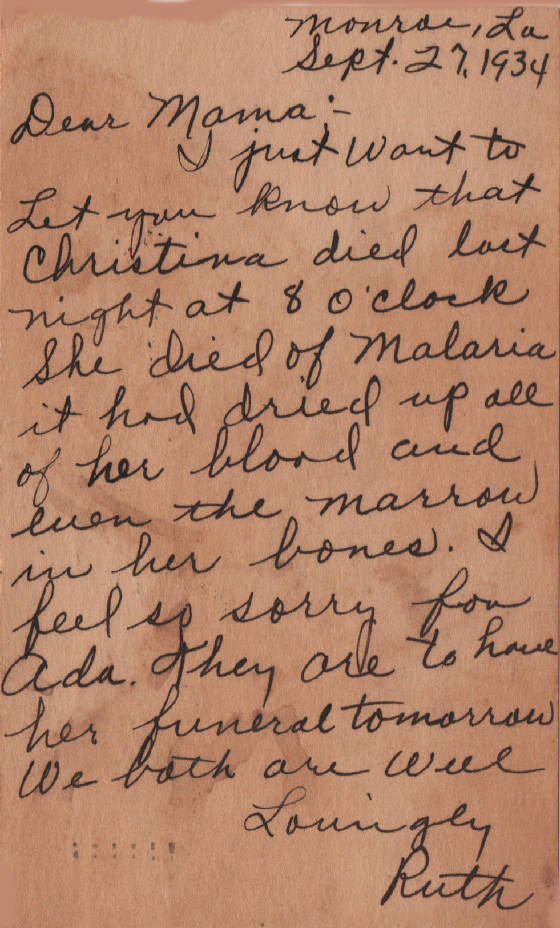 Monroe, La
Sept. 27, 1934
Dear Mama:-
I just want to
Let you know that
Christina died last
night at 8 O'clock
She died of Malaria
it had dried up all
of her blood and
even the marrow
in her bones. I
feel so sorry for
Ada. They are to have
her funeral tomorrow
We both are well
Lovingly
Ruth